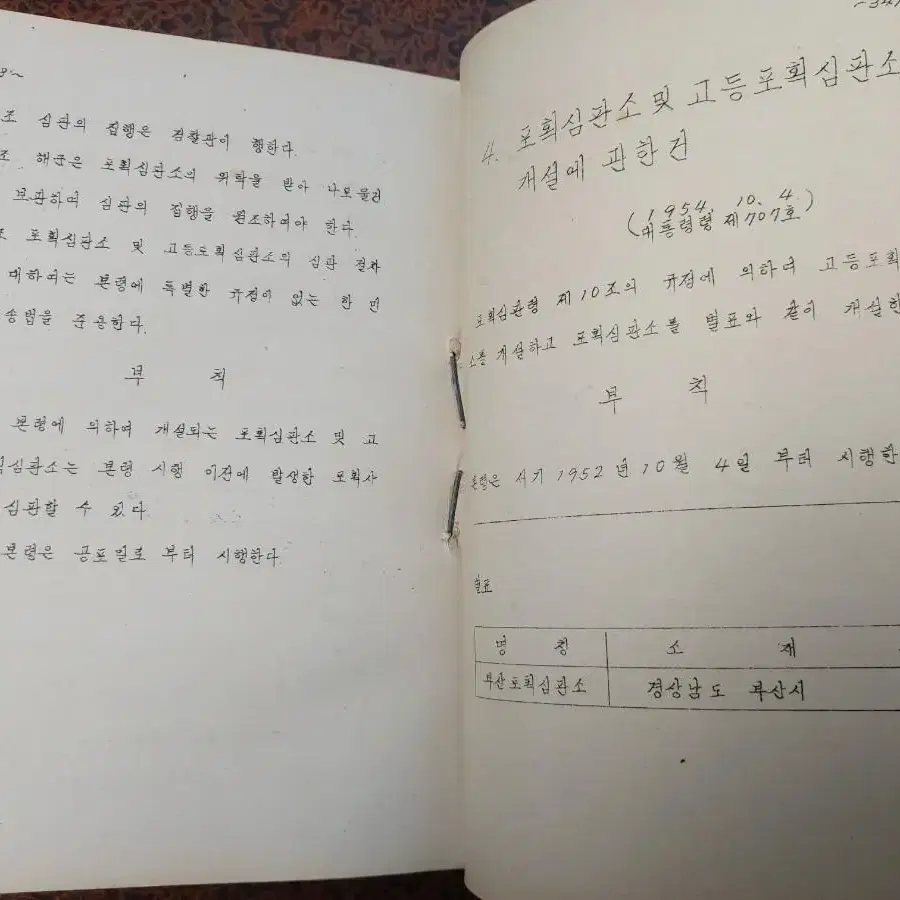 조 심판의 집행은 검찰관이 행한다.
조 해군은 포획심판소의 위탁을 받아 나포물건
보관하여 심판의 집행을 원조하여야 한다.
조 포획심판소 및 고등포획심판소의 심판 절차
대하여는 본령에 특별한 규정이 없는 한 민
송법을 준용한다.
부 칙
본령에 의하여 개설되는 포획심판소 및 고
획심판소는 본령 시행 이전에 발생한 포획사
심판할 수 있다.
본령은 공포일로 부터 시행한다.
4. 포획심판소 및 고등포획심판소
개설에 관한 건
(1954. 10. 4.
대통령령 제707호)
포획심판령 제10조의 규정에 의하여 고등포획
소를 개설하고 포획심판소를 별표와 같이 개설한
부 칙
본령은 서기 1952년 10월 4일 부터 시행한
별표
명 칭 소 재
부산포획심판소 경상남도 부산시